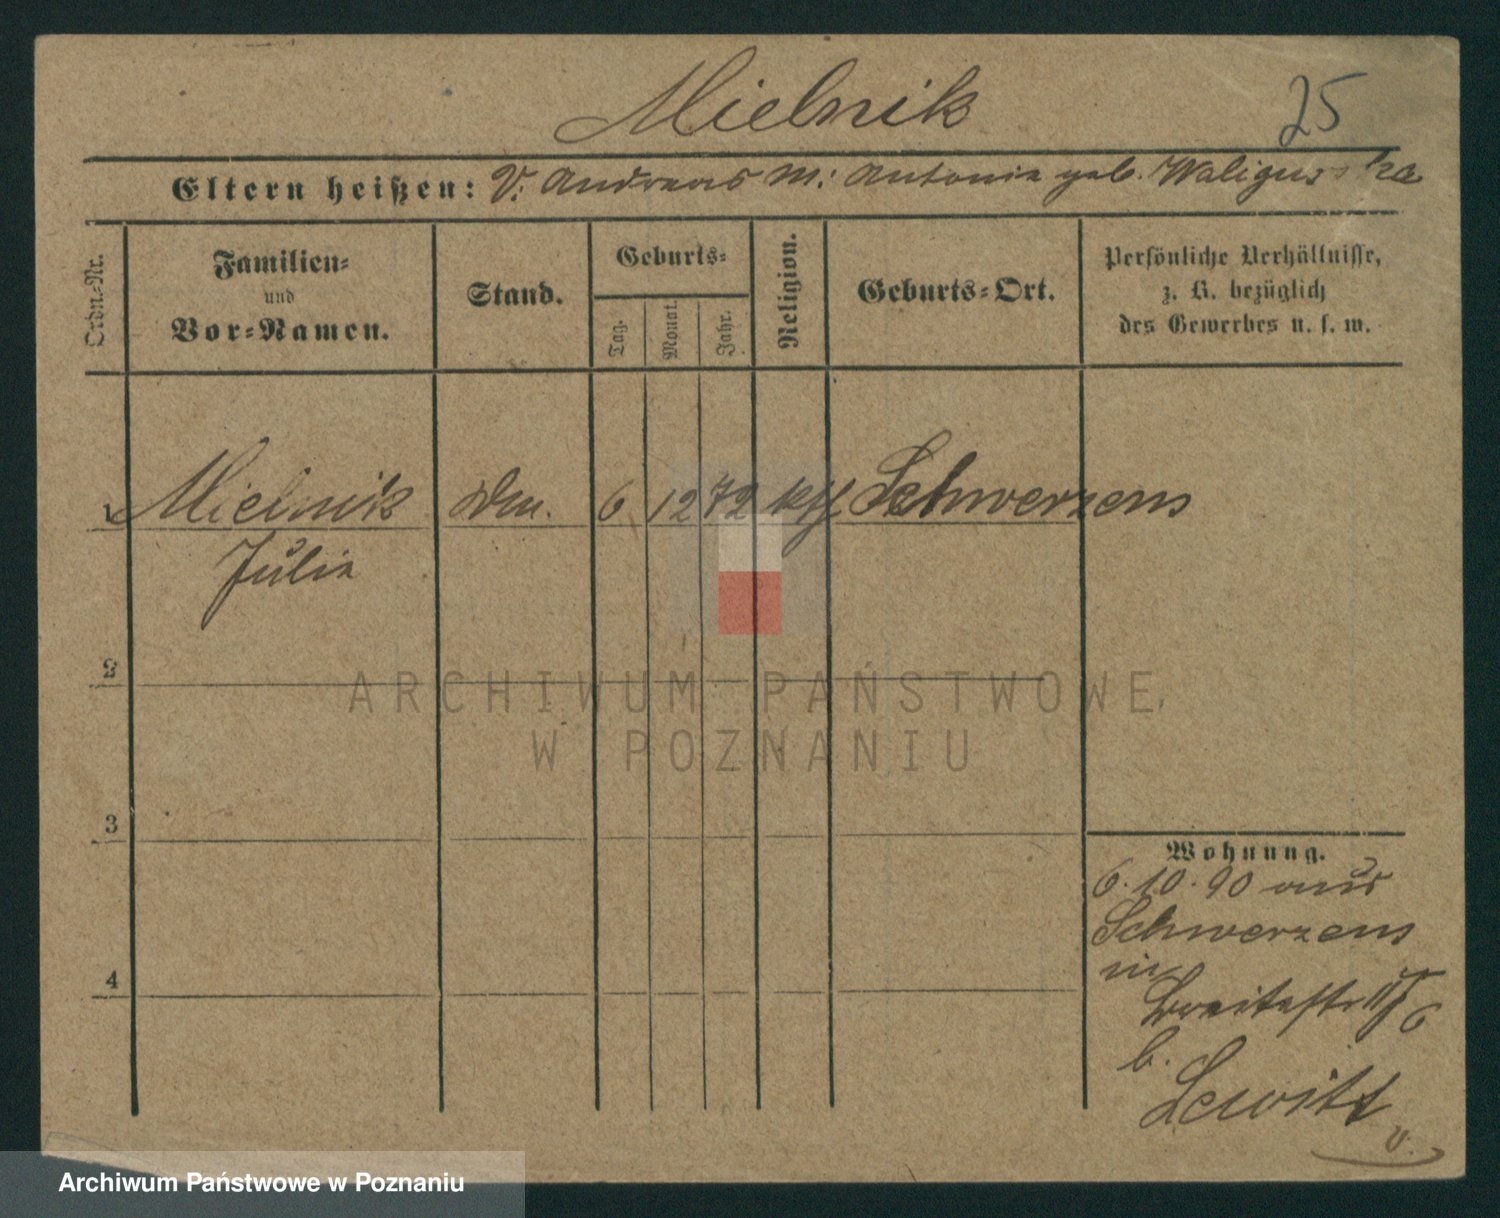 Mielnik
25
Eltern heißen: V: Andreas M: Antonie geb. Waligurska
Ordn.-Nr.
Familien-
und
Vor-Namen.
Stand.
Geburts-
Tag.
Monat.
Jahr.
Religion.
Geburts-Ort.
Persönliche Verhältnisse,
z. B. bezüglich
des Gewerbes u. s. w.
1 Mielnik 6 12 72 kth Schwersenz
Julie
2
3
4
Wohnung.
6.10.90 aus
Schwersenz
in
Breitestr 6
b.
Lewitt
ARCHIWUM PAŃSTWOWE
W POZNANIU
Archiwum Państwowe w Poznaniu